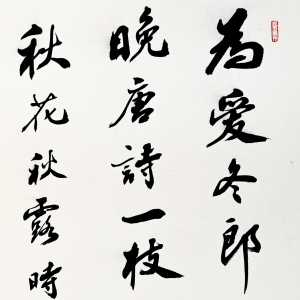 為愛冬郎
晚唐詩一枝
秋花秋露時